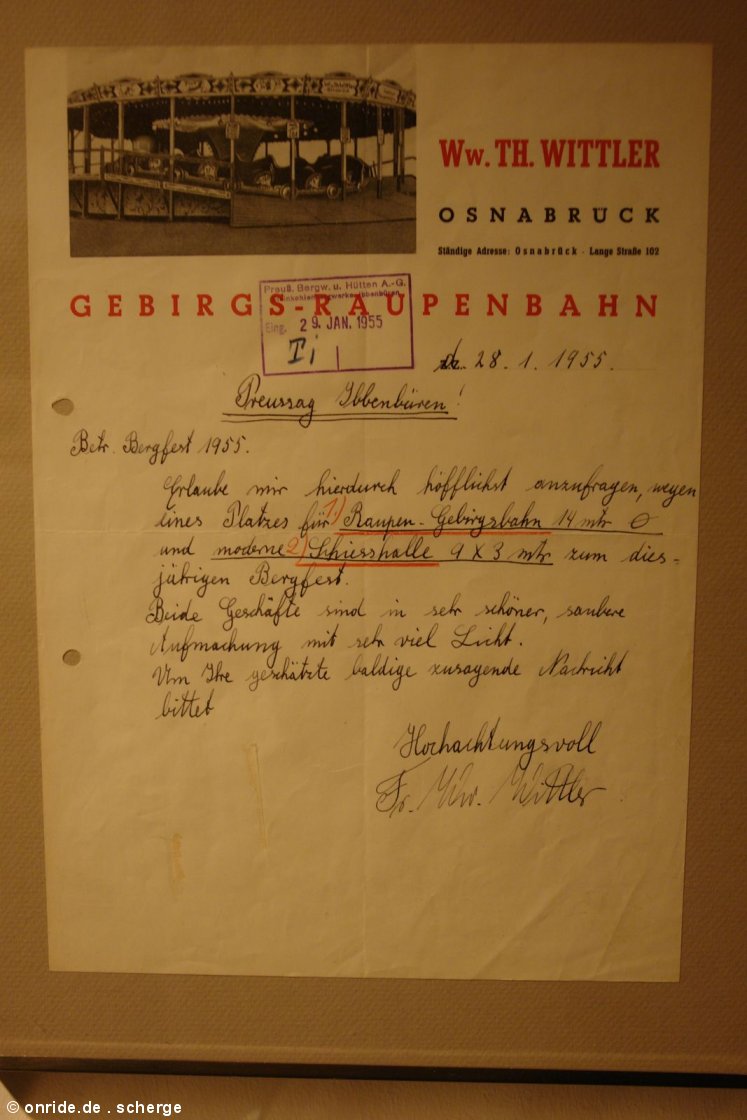 Ww. TH. WITTLER
OSNABRÜCK
Ständige Adresse: Osnabrück · Lange Straße 102
GEBIRGS-RAUPENBAHN
Preuß. Bergw. u. Hütten A.-G.
Steinkohlenbergwerke Ibbenbüren
Eing. 29. JAN. 1955
d. 28. 1. 1955.
Preussag Ibbenbüren!
Betr. Bergfest 1955.
Erlaube mir hierdurch höfflichst anzufragen, wegen
eines Platzes für 1) Raupen-Gebirgsbahn 14 mtr ∅
und moderne 2) Schiesshalle 9 X 3 mtr zum dies-
jährigen Bergfest.
Beide Geschäfte sind in sehr schöner, saubere
Aufmachung mit sehr viel Licht.
Um Ihre geschätzte baldige zusagende Nachricht
bittet
Hochachtungsvoll
Fr. Ww. Wittler
© onride.de . scherge